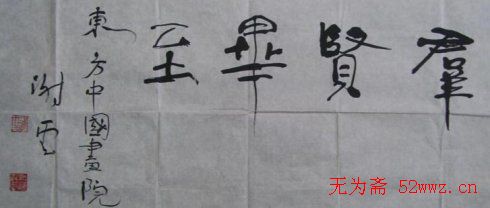 羣賢畢至
東方中國畫院
謝雲
无为斋 52wwz.cn